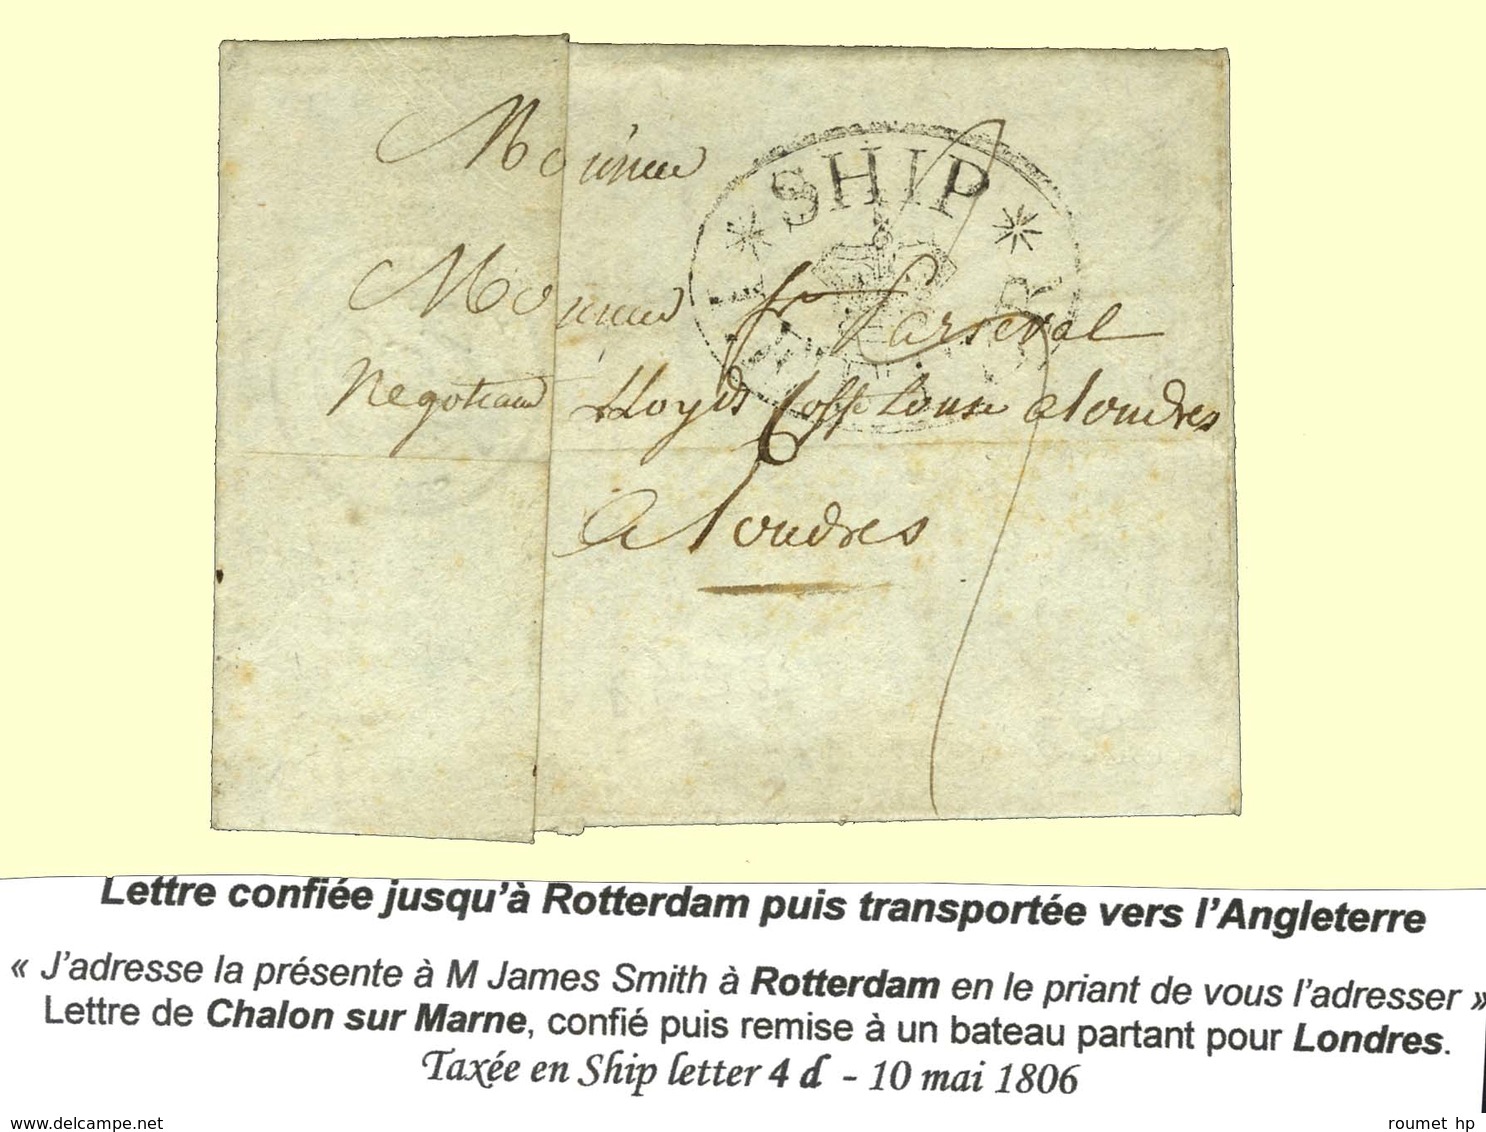 Monsieur
* SHIP *
Monsieur Parseval
Negotiant Lloyds Coffe house a Londres
6
a Londres
Lettre confiée jusqu'à Rotterdam puis transportée vers l'Angleterre
« J'adresse la présente à M James Smith à Rotterdam en le priant de vous l'adresser »
Lettre de Chalon sur Marne, confié puis remise à un bateau partant pour Londres.
Taxée en Ship letter 4 d - 10 mai 1806
www.delcampe.net
roumet hp